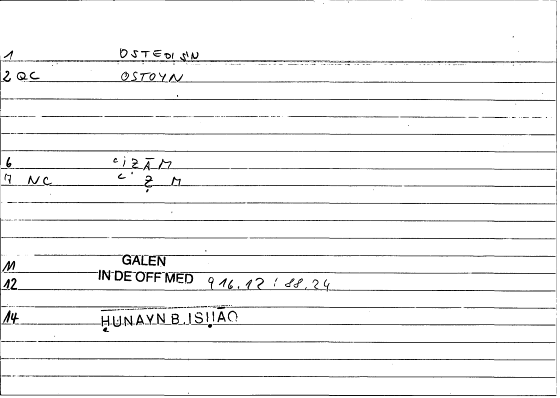 1 OSTEOISIN
2 QC OSTOYN
6 ʿIẒĀM
7 NC ʿẒM
11 GALEN
12 IN DE OFF MED 916.12 : 88.24
14 ḤUNAYN B. ISḤĀQ